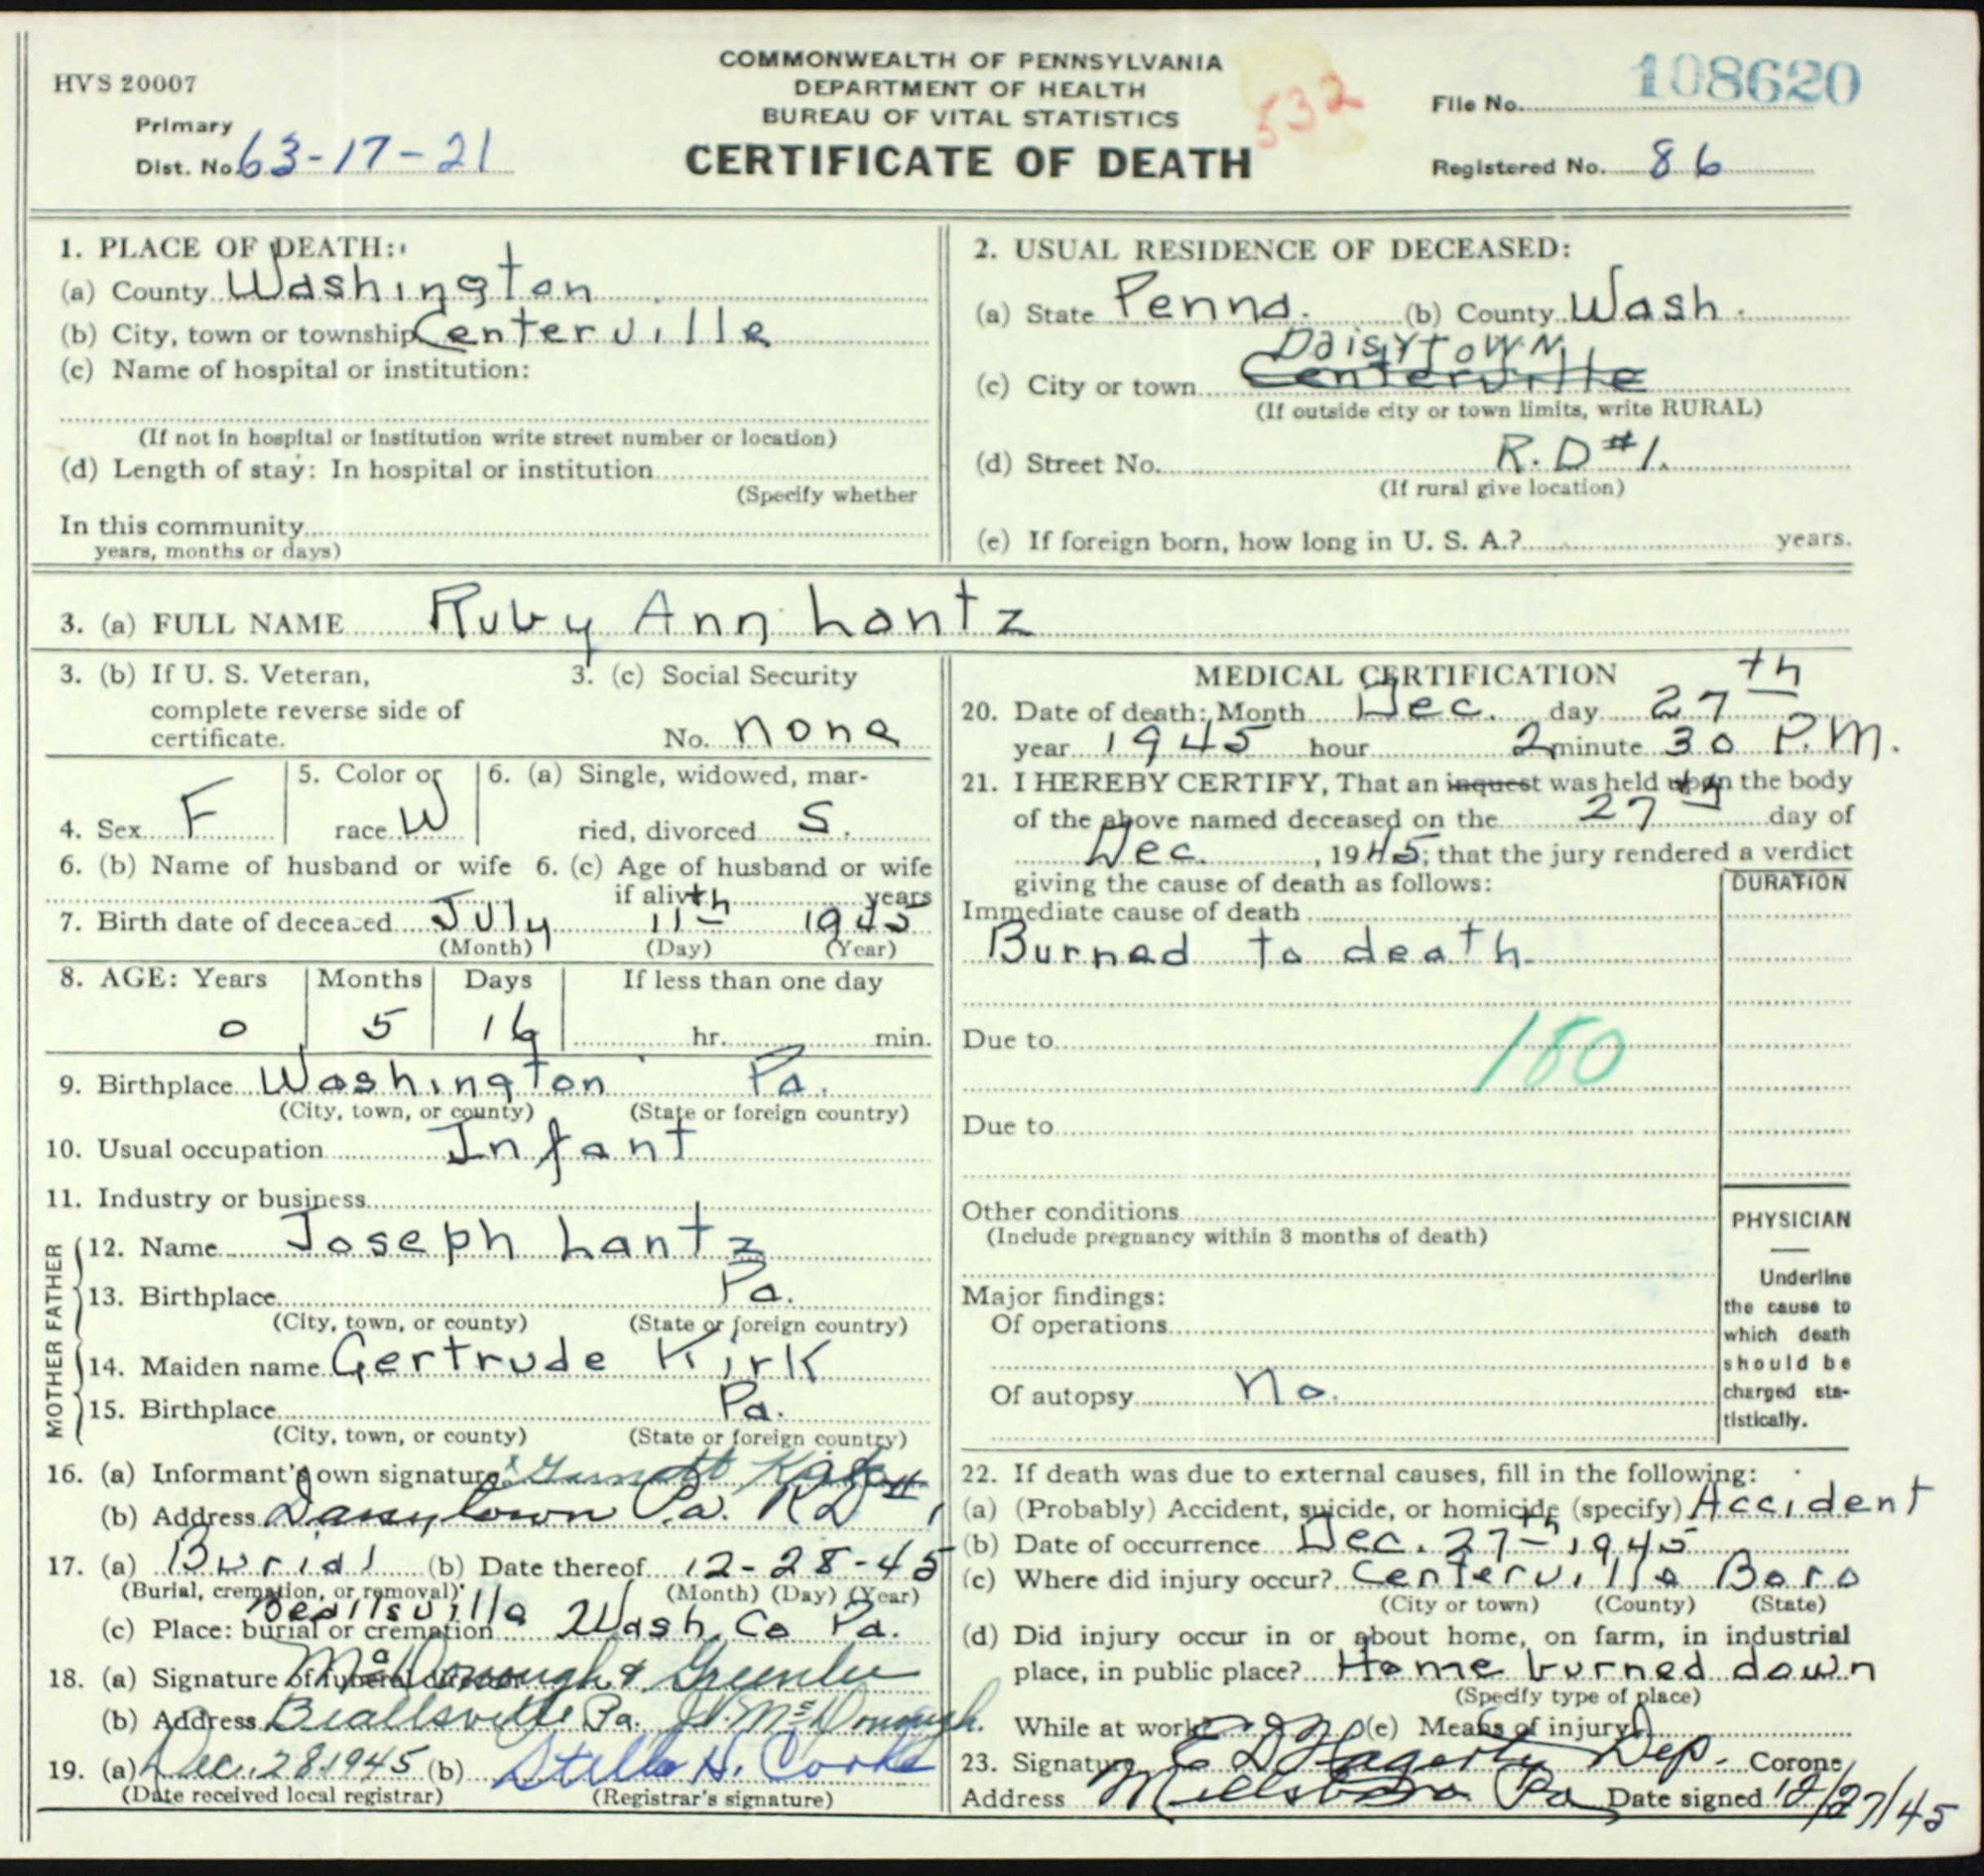 HVS 20007
COMMONWEALTH OF PENNSYLVANIA
DEPARTMENT OF HEALTH
BUREAU OF VITAL STATISTICS
CERTIFICATE OF DEATH
532
Primary
Dist. No. 63-17-21
File No. 108620
Registered No. 86
1. PLACE OF DEATH:
(a) County Washington
(b) City, town or township Centerville
(c) Name of hospital or institution:
(If not in hospital or institution write street number or location)
(d) Length of stay: In hospital or institution
(Specify whether
In this community
years, months or days)
2. USUAL RESIDENCE OF DECEASED:
(a) State Penna. (b) County Wash.
Daisytown
(c) City or town Centerville
(If outside city or town limits, write RURAL)
(d) Street No. R.D #1.
(If rural give location)
(e) If foreign born, how long in U. S. A.? years.
3. (a) FULL NAME Ruby Ann Lantz
3. (b) If U. S. Veteran,
complete reverse side of
certificate.
3. (c) Social Security
No. none
4. Sex F
5. Color or
race W
6. (a) Single, widowed, mar-
ried, divorced S.
6. (b) Name of husband or wife
6. (c) Age of husband or wife
if alive years
7. Birth date of deceased July 11th 1945
(Month) (Day) (Year)
8. AGE: Years Months Days If less than one day
0 5 16 hr. min.
9. Birthplace Washington Pa.
(City, town, or county) (State or foreign country)
10. Usual occupation Infant
11. Industry or business
FATHER
12. Name Joseph Lantz
13. Birthplace Pa.
(City, town, or county) (State or foreign country)
MOTHER
14. Maiden name Gertrude Kirk
15. Birthplace Pa.
(City, town, or county) (State or foreign country)
16. (a) Informant's own signature
(b) Address Daisytown Pa. RD #1
17. (a) Burial (b) Date thereof 12-28-45
(Burial, cremation, or removal) (Month) (Day) (Year)
(c) Place: burial or cremation Beallsville Wash. Co Pa.
18. (a) Signature of funeral director McDonough & Greenlee
(b) Address Beallsville Pa. McDonough.
19. (a) Dec. 28 1945 (b) Stella H. Cooke
(Date received local registrar) (Registrar's signature)
MEDICAL CERTIFICATION
20. Date of death: Month Dec. day 27th
year 1945 hour 2 minute 30 P.M.
21. I HEREBY CERTIFY, That an inquest was held upon the body
of the above named deceased on the 27th day of
Dec. , 1945; that the jury rendered a verdict
giving the cause of death as follows:
DURATION
Immediate cause of death
Burned to death.
Due to
180
Due to
Other conditions
(Include pregnancy within 3 months of death)
Major findings:
Of operations
Of autopsy no.
PHYSICIAN
Underline
the cause to
which death
should be
charged sta-
tistically.
22. If death was due to external causes, fill in the following:
(a) (Probably) Accident, suicide, or homicide (specify) Accident
(b) Date of occurrence Dec. 27th 1945
(c) Where did injury occur? Centerville Boro
(City or town) (County) (State)
(d) Did injury occur in or about home, on farm, in industrial
place, in public place? Home burned down
(Specify type of place)
While at work? (e) Means of injury
23. Signature E D Hagerty Dep. Corone
Address Millsboro Pa Date signed 12/27/45